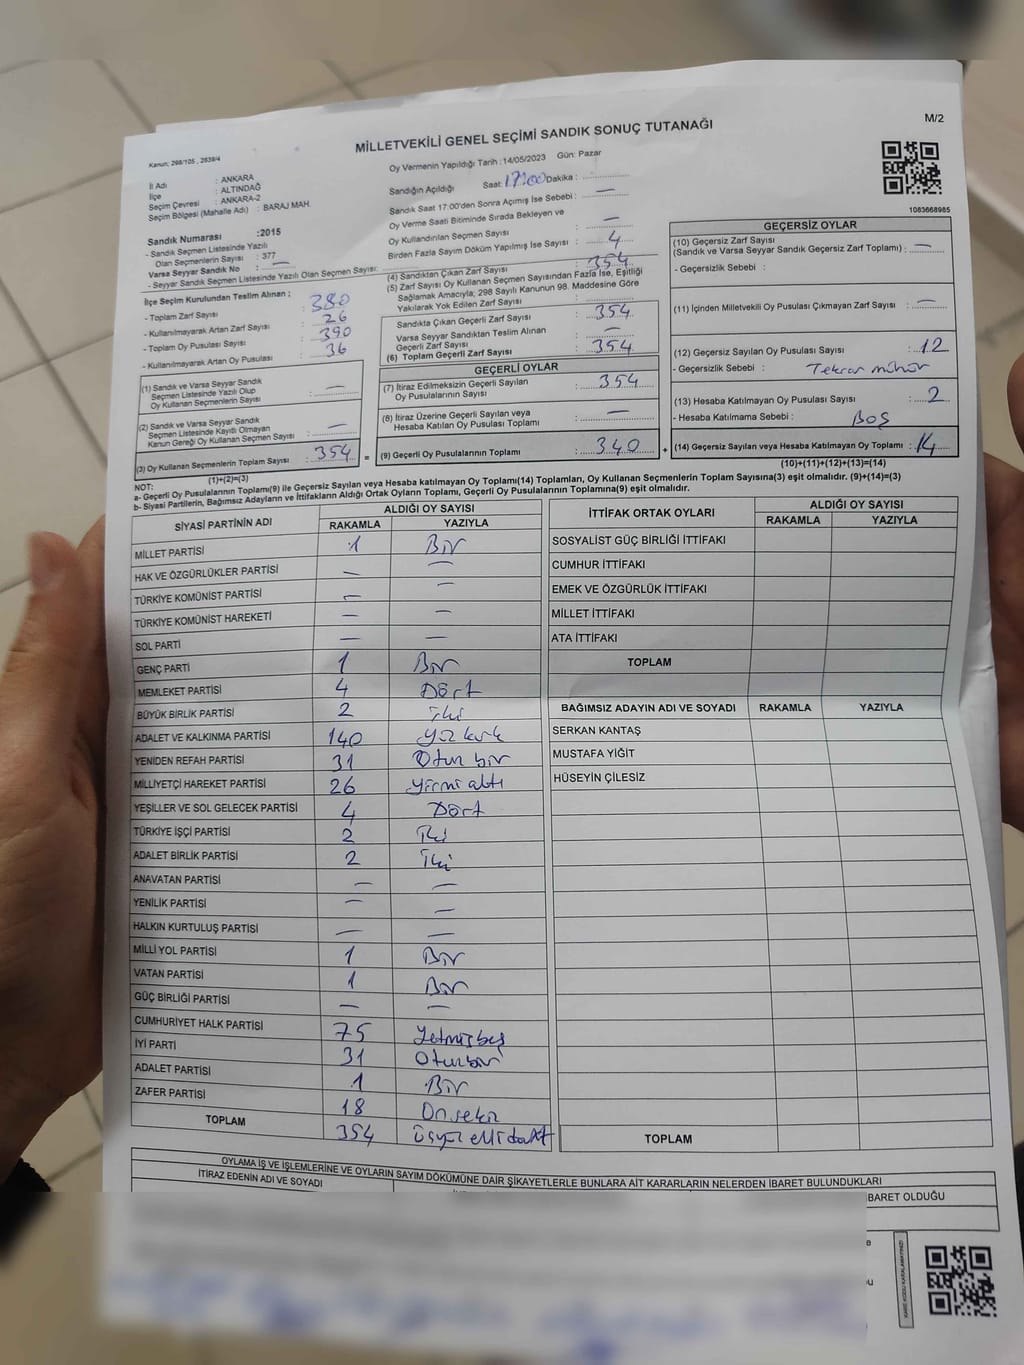 M/2
MİLLETVEKİLİ GENEL SEÇİMİ SANDIK SONUÇ TUTANAĞI
Kanun; 298/105 , 2839/4
İl Adı : ANKARA
İlçe : ALTINDAĞ
Seçim Çevresi : ANKARA-2
Seçim Bölgesi (Mahalle Adı) : BARAJ MAH.
Sandık Numarası :2015
- Sandık Seçmen Listesinde Yazılı
Olan Seçmenlerin Sayısı : 377
Varsa Seyyar Sandık No : —
- Seyyar Sandık Seçmen Listesinde Yazılı Olan Seçmen Sayısı:
İlçe Seçim Kurulundan Teslim Alınan ;
- Toplam Zarf Sayısı : 380
- Kullanılmayarak Artan Zarf Sayısı : 26
- Toplam Oy Pusulası Sayısı : 390
- Kullanılmayarak Artan Oy Pusulası : 36
(1) Sandık ve Varsa Seyyar Sandık
Seçmen Listesinde Yazılı Olup
Oy Kullanan Seçmenlerin Sayısı : —
(2) Sandık ve Varsa Seyyar Sandık
Seçmen Listesinde Kayıtlı Olmayan
Kanun Gereği Oy Kullanan Seçmen Sayısı : —
(3) Oy Kullanan Seçmenlerin Toplam Sayısı : 354 =
(1)+(2)=(3)
Oy Vermenin Yapıldığı Tarih :14/05/2023 Gün: Pazar
Sandığın Açıldığı Saat: 17:00 Dakika :
Sandık Saat 17:00'den Sonra Açımış İse Sebebi : —
Oy Verme Saati Bitiminde Sırada Bekleyen ve
Oy Kullandırılan Seçmen Sayısı : —
Birden Fazla Sayım Döküm Yapılmış İse Sayısı : 4
(4) Sandıktan Çıkan Zarf Sayısı : 354
(5) Zarf Sayısı Oy Kullanan Seçmen Sayısından Fazla İse, Eşitliği
Sağlamak Amacıyla; 298 Sayılı Kanunun 98. Maddesine Göre
Yakılarak Yok Edilen Zarf Sayısı :
Sandıkta Çıkan Geçerli Zarf Sayısı : 354
Varsa Seyyar Sandıktan Teslim Alınan
Geçerli Zarf Sayısı : —
(6) Toplam Geçerli Zarf Sayısı : 354
GEÇERLİ OYLAR
(7) İtiraz Edilmeksizin Geçerli Sayılan
Oy Pusulalarının Sayısı : 354
(8) İtiraz Üzerine Geçerli Sayılan veya
Hesaba Katılan Oy Pusulası Toplamı : —
(9) Geçerli Oy Pusulalarının Toplamı : 340 +
1083668985
GEÇERSİZ OYLAR
(10) Geçersiz Zarf Sayısı
(Sandık ve Varsa Seyyar Sandık Geçersiz Zarf Toplamı) : —
- Geçersizlik Sebebi :
(11) İçinden Milletvekili Oy Pusulası Çıkmayan Zarf Sayısı : —
(12) Geçersiz Sayılan Oy Pusulası Sayısı : 12
- Geçersizlik Sebebi : Tekrar mühür
(13) Hesaba Katılmayan Oy Pusulası Sayısı : 2
- Hesaba Katılmama Sebebi : BOŞ
(14) Geçersiz Sayılan veya Hesaba Katılmayan Oy Toplamı : 14
(10)+(11)+(12)+(13)=(14)
NOT:
a- Geçerli Oy Pusulalarının Toplamı(9) ile Geçersiz Sayılan veya Hesaba katılmayan Oy Toplamı(14) Toplamları, Oy Kullanan Seçmenlerin Toplam Sayısına(3) eşit olmalıdır. (9)+(14)=(3)
b- Siyasi Partilerin, Bağımsız Adayların ve İttifakların Aldığı Ortak Oyların Toplamı, Geçerli Oy Pusulalarının Toplamına(9) eşit olmalıdır.
SİYASİ PARTİNİN ADI ALDIĞI OY SAYISI
RAKAMLA YAZIYLA
MİLLET PARTİSİ 1 Bir
HAK VE ÖZGÜRLÜKLER PARTİSİ — —
TÜRKİYE KOMÜNİST PARTİSİ — —
TÜRKİYE KOMÜNİST HAREKETİ — —
SOL PARTİ — —
GENÇ PARTİ 1 Bir
MEMLEKET PARTİSİ 4 Dört
BÜYÜK BİRLİK PARTİSİ 2 iki
ADALET VE KALKINMA PARTİSİ 140 yüz kırk
YENİDEN REFAH PARTİSİ 31 Otuz bir
MİLLİYETÇİ HAREKET PARTİSİ 26 yirmi altı
YEŞİLLER VE SOL GELECEK PARTİSİ 4 Dört
TÜRKİYE İŞÇİ PARTİSİ 2 İki
ADALET BİRLİK PARTİSİ 2 İki
ANAVATAN PARTİSİ — —
YENİLİK PARTİSİ — —
HALKIN KURTULUŞ PARTİSİ — —
MİLLİ YOL PARTİSİ 1 Bir
VATAN PARTİSİ 1 Bir
GÜÇ BİRLİĞİ PARTİSİ — —
CUMHURİYET HALK PARTİSİ 75 yetmişbeş
İYİ PARTİ 31 Otuzbir
ADALET PARTİSİ 1 Bir
ZAFER PARTİSİ 18 Onsekiz
TOPLAM 354 üçyüz elli dört
İTTİFAK ORTAK OYLARI ALDIĞI OY SAYISI
RAKAMLA YAZIYLA
SOSYALİST GÜÇ BİRLİĞİ İTTİFAKI
CUMHUR İTTİFAKI
EMEK VE ÖZGÜRLÜK İTTİFAKI
MİLLET İTTİFAKI
ATA İTTİFAKI
TOPLAM
BAĞIMSIZ ADAYIN ADI VE SOYADI RAKAMLA YAZIYLA
SERKAN KANTAŞ
MUSTAFA YİĞİT
HÜSEYİN ÇİLESİZ
TOPLAM
OYLAMA İŞ VE İŞLEMLERİNE VE OYLARIN SAYIM DÖKÜMÜNE DAİR ŞİKAYETLERLE BUNLARA AİT KARARLARIN NELERDEN İBARET BULUNDUKLARI
İTİRAZ EDENİN ADI VE SOYADI
BARET OLDUĞU
KARE KODU KARALAMAYINIZ!